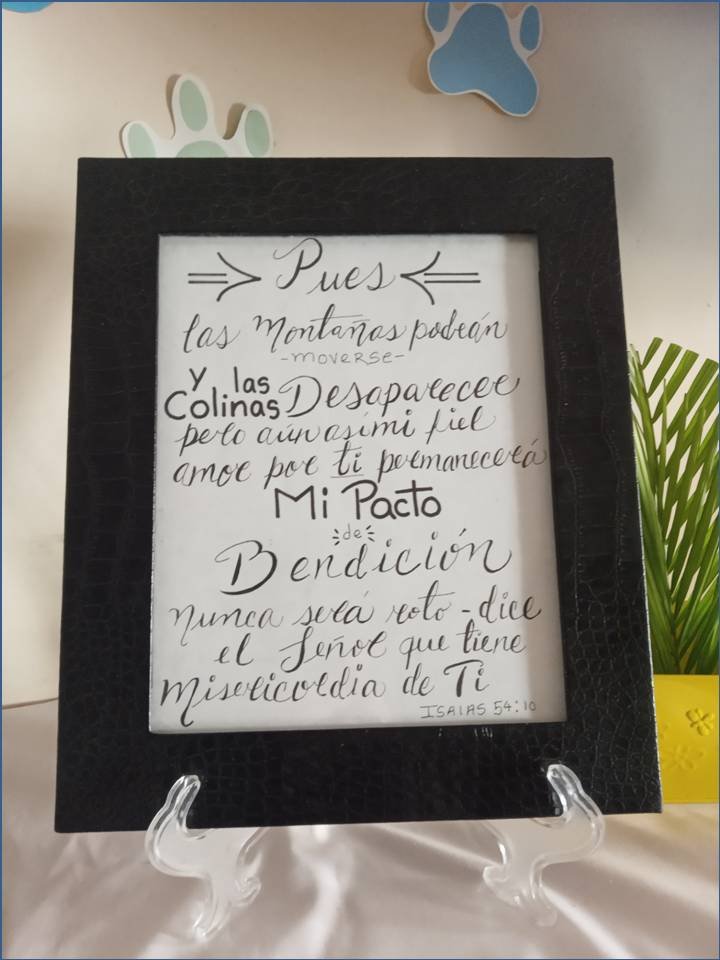 Pues
las Montañas podrán
-moverse-
y las
Colinas Desaparecer
pero aún así mi fiel
amor por ti permanecerá
Mi Pacto
de
Bendición
nunca será roto - dice
el Señor que tiene
Misericordia de Ti
ISAIAS 54:10